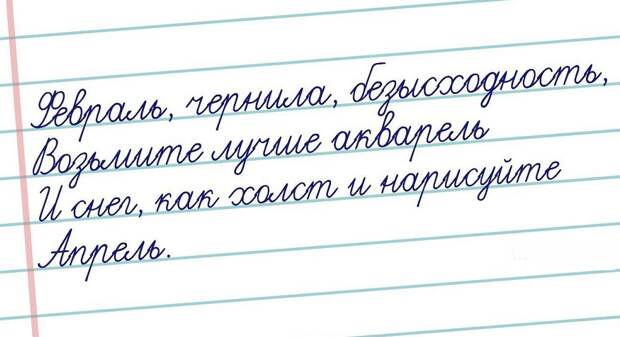 Февраль, чернила, безысходность,
Возьмите лучше акварель
И снег, как холст и нарисуйте
Апрель.